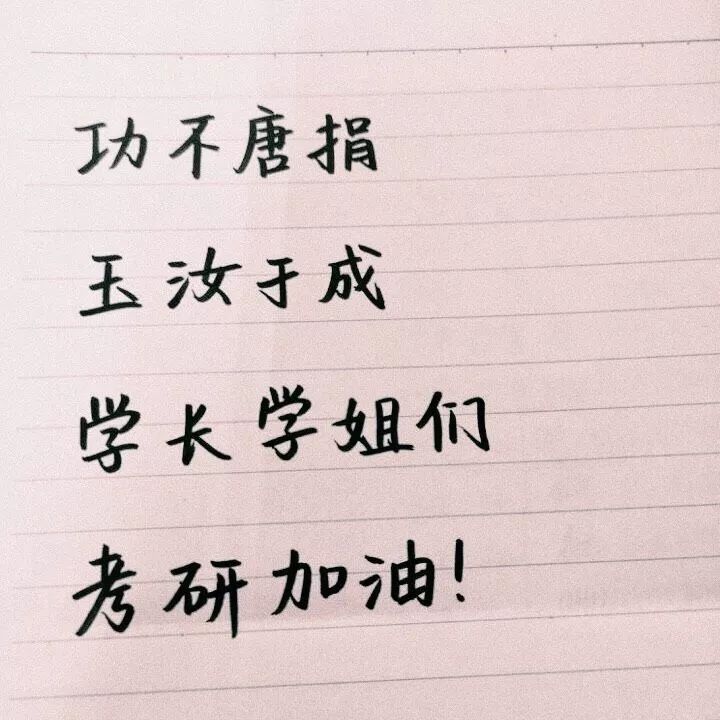 功不唐捐
玉汝于成
学长学姐们
考研加油!